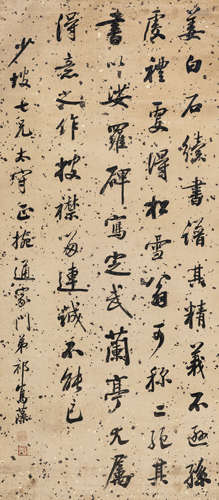 姜白石續書譜其精義不遜孫
虔禮更得松雪翁可稱二絕其
書以娑羅碑寫定武蘭亭尤屬
得意之作披襟留連誠不能已
少坡七兄太守正捥通家門弟祁寯藻